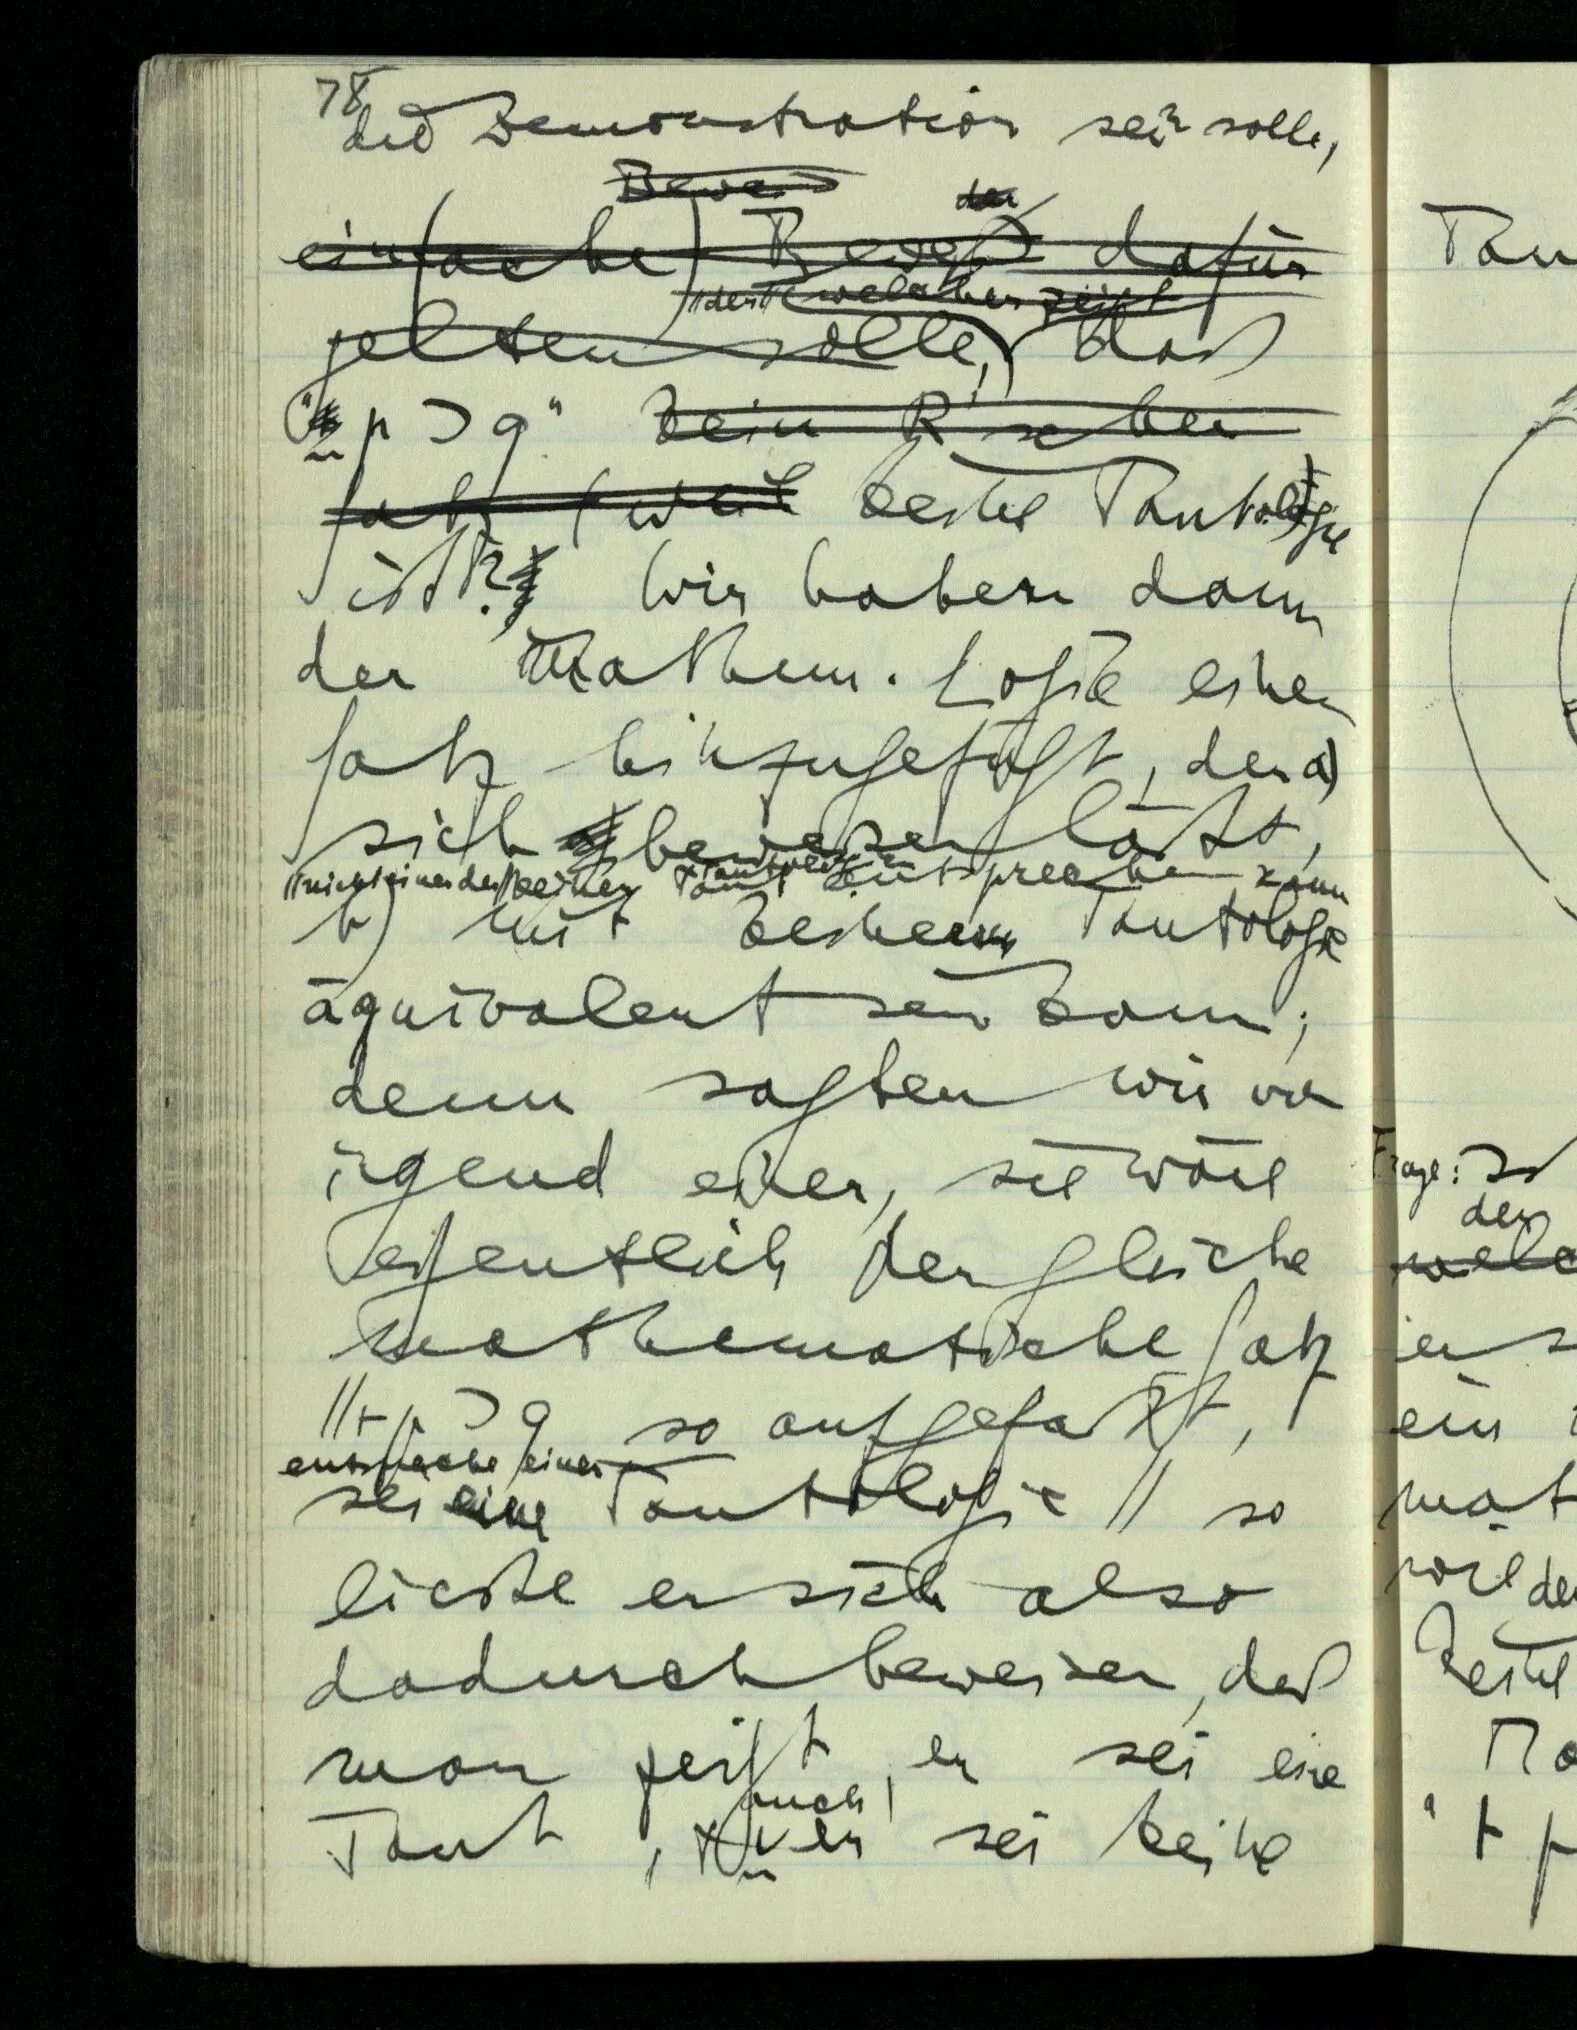 78
die Demonstration sein solle,
Beweis
der
einfache) Beweis dafür
"der" (welcher zeigt
gelten solle,) daß
"p ⊃ q" kein R'scher
Satz (weil keine Tautologie
ist? Wir haben dann
der Mathem. Logik einen
Satz hinzugefügt, der a)
sich beweisen läßt,
keiner Taut. entsprechen kann
b) mit keiner Tautologie
äquivalent sein kann;
denn sagten wir von
irgend einer, sie wäre
eigentlich der gleiche
mathematische Satz
//⊢p ⊃ q so aufgefaßt,
entspreche einer
sei eine Tautologie// so
ließe er sich also
dadurch beweisen, daß
man zeigt, er sei eine
Taut, auch,
er sei keine
Tau
Frage: Is
der
welc
er s
ein
mat
wie der
keine
Ma
"⊢ p